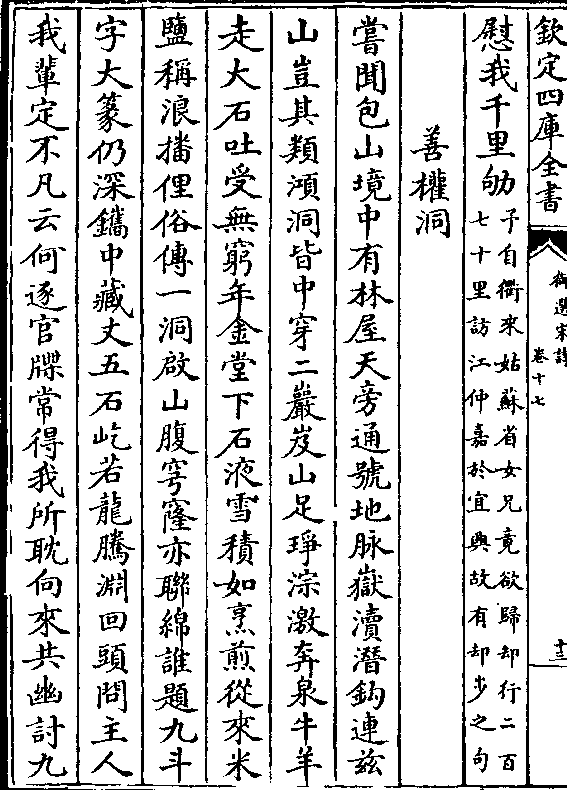 欽定四庫全書
御選宋詩
卷十七
十三
慰我千里劬
予自衢來姑蘇省女兄竟欲歸却行二百
七十里訪江仲嘉於宜興故有却步之句
善權洞
嘗聞包山境中有林屋天旁通號地脉嶽瀆潛鈎連兹
山豈其類澒洞皆中穿二巖岌山足琤淙激奔泉牛羊
走大石吐受無窮年金堂下石液雪積如烹煎從來米
鹽稱浪播俚俗傳一洞啟山腹穹窿亦聯綿誰題九斗
字大篆仍深鐫中藏丈五石屹若龍騰淵回頭問主人
我輩定不凡云何逐官牒常得我所耽向來共幽討九